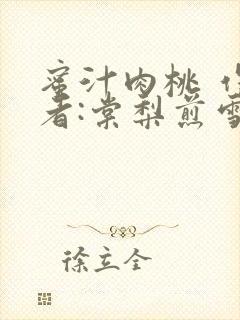 蜜汁肉桃 作
者:棠梨煎雪
徐立全